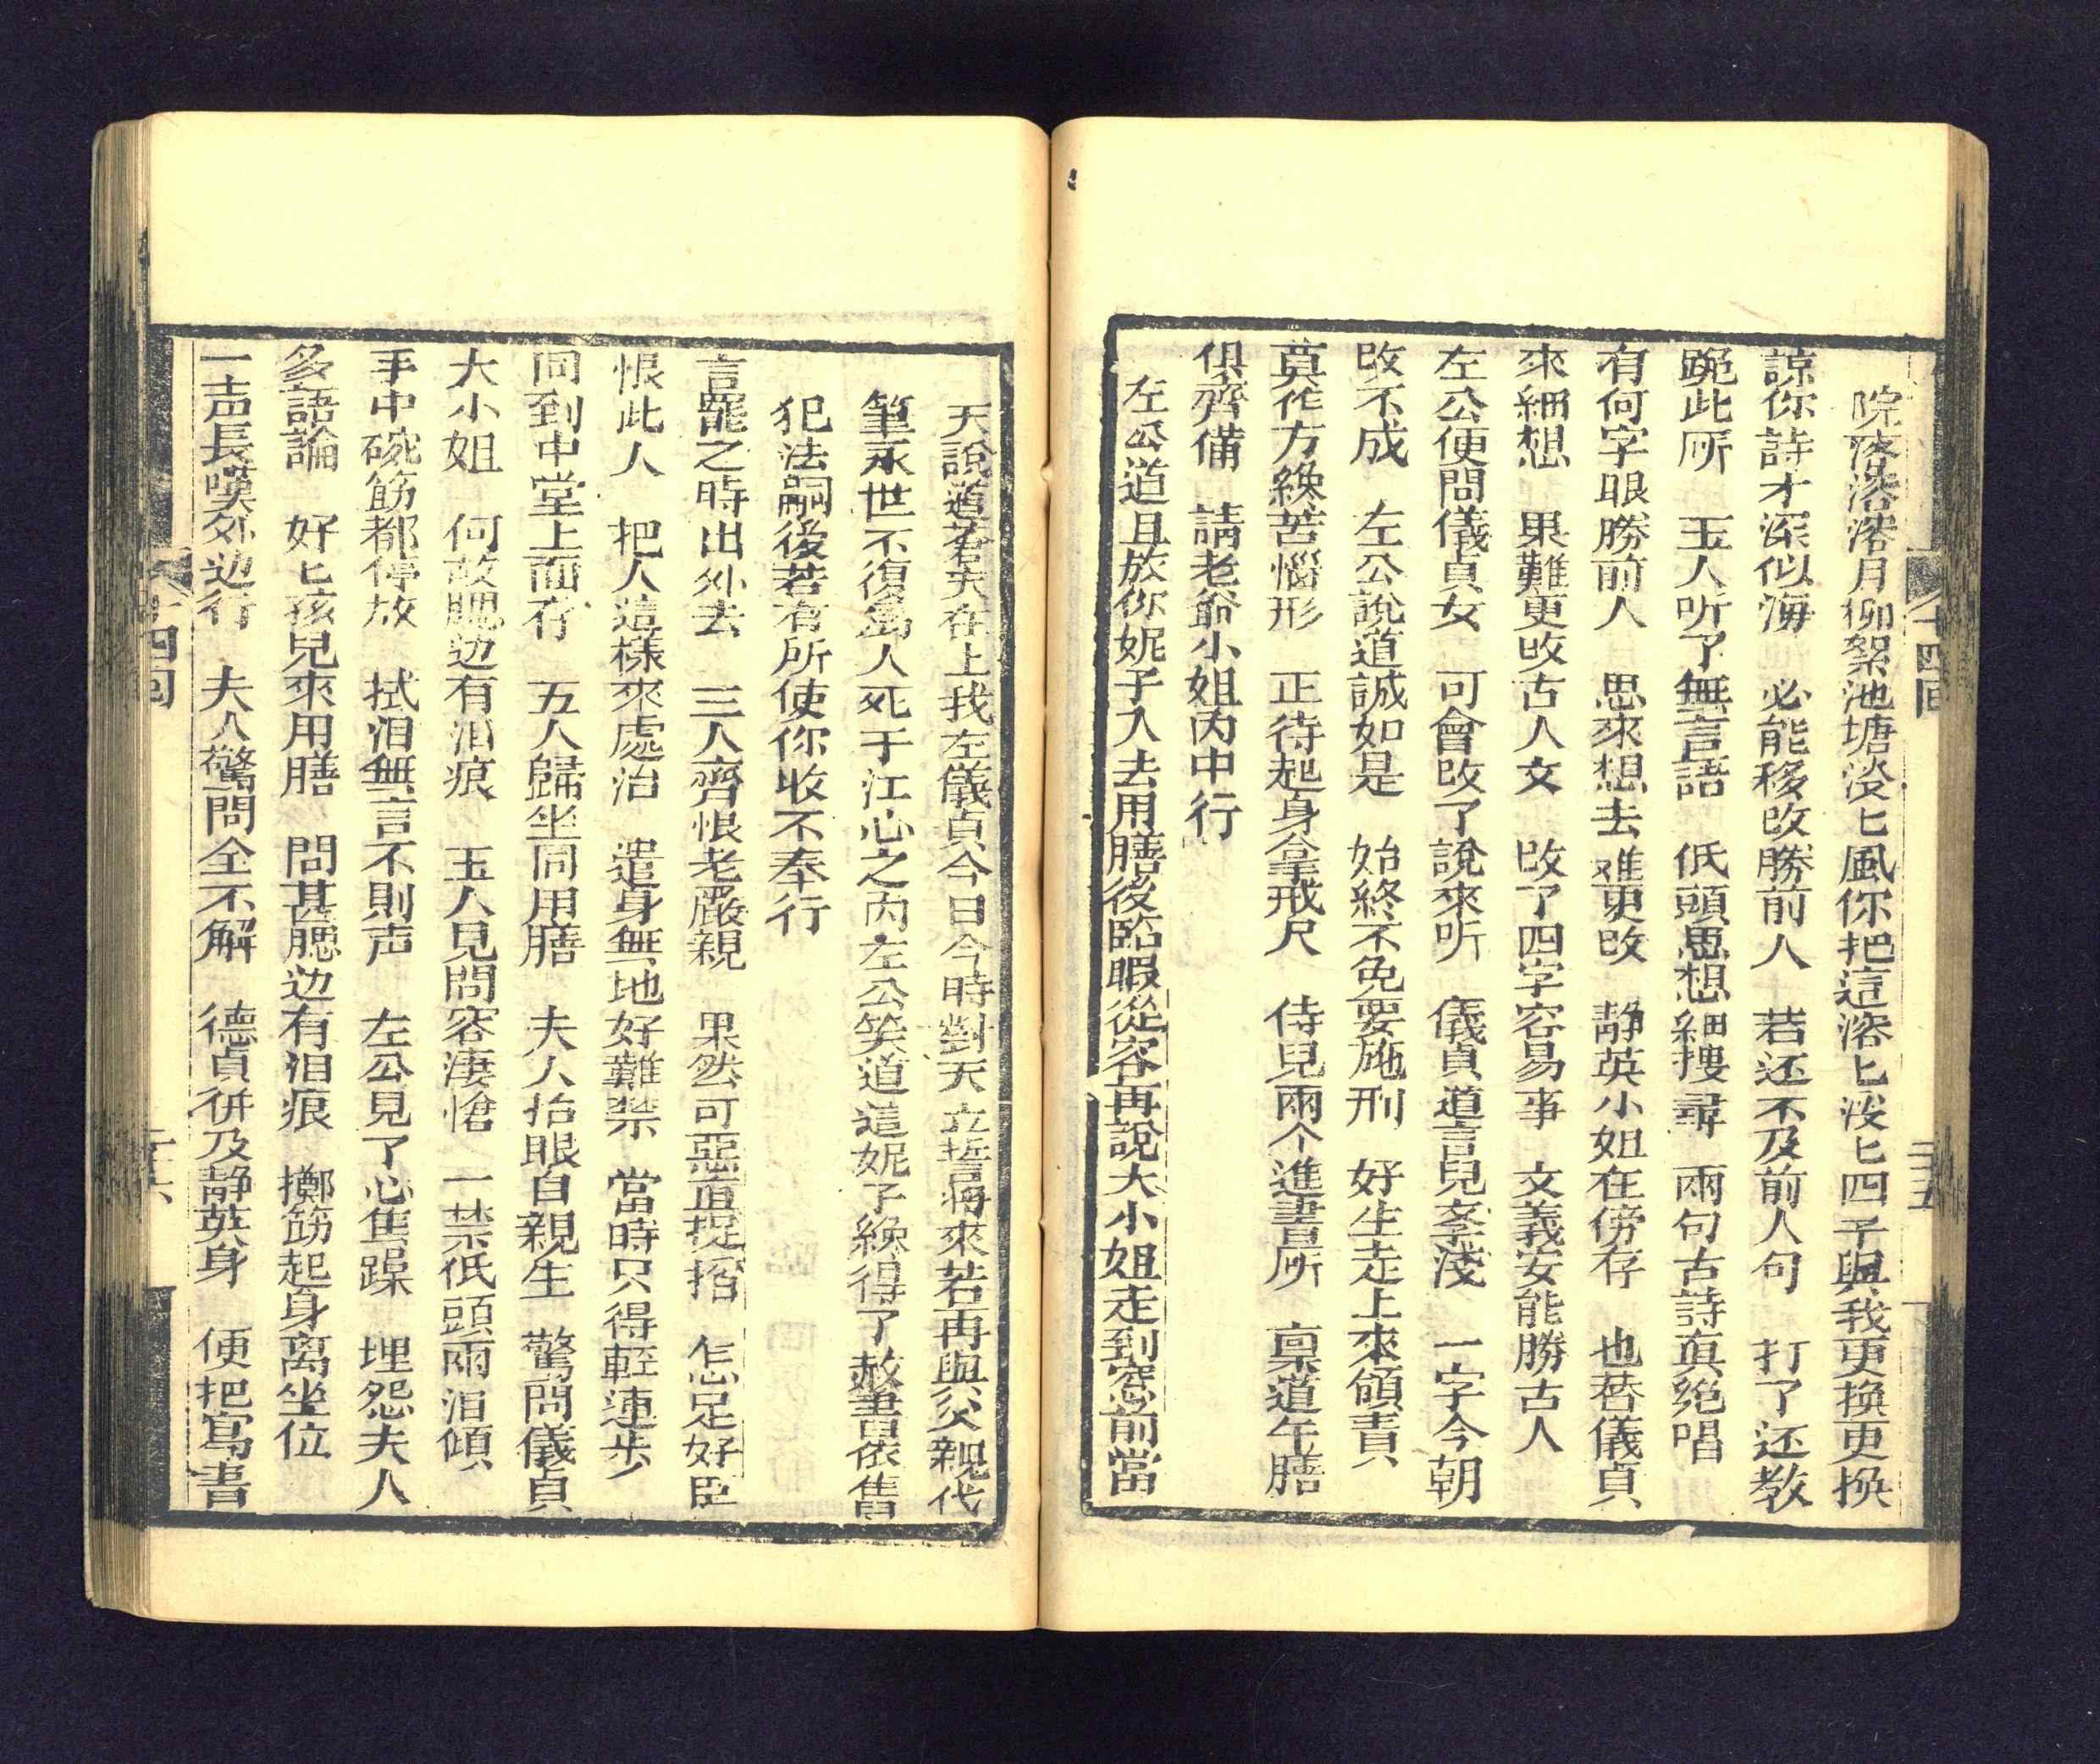 院落溶溶月柳絮池塘淡匕風你把這溶匕淡匕四字與我更換更換
諒你詩才深似海　必能移改勝前人　若还不及前人句　打了还教
跪此所　玉人听了無言語　低頭思想細搜尋　兩句古詩真绝唱
有何字眼勝前人　思來想去难更改　静英小姐在傍存　也替儀貞
來細想　果難更改古人文　改了四字容易事　文義安能勝古人
左公便問儀貞女　可會改了說來听　儀貞道言兒才淺　一字今朝
改不成　左公說道誠如是　始終不免要施刑　好生走上來領責
莫作方纔苦惱形　正待起身拿戒尺　侍兒兩个進書所　禀道午膳
俱齊備　請老爺小姐內中行
左公道且放你妮子入去用膳後臨暇從容再說大小姐走到窓前當
十四回
三十五
天說道蒼天在上我左儀貞今日今時對天立誓將來若再與父親代
筆永世不復為人死于江心之內左公笑道這妮子纔得了赦書依舊
犯法嗣後若有所使你收不奉行
言罷之時出外去　三人齊恨老嚴親　果然可惡直捉掐　怎足好臣
恨此人　把人這樣來處治　遣身無地好難禁　當時只得輕連步
同到中堂上面存　五人歸坐同用膳　夫人抬眼自親生　驚問儀貞
大小姐　何故腮边有泪痕　玉人見問容淒愴　一禁低頭兩泪傾
手中碗筯都停放　拭泪無言不則声　左公見了心焦躁　埋怨夫人
多語論　好匕孩兒來用膳　問甚腮边有泪痕　擲筯起身离坐位
一声長嘆外边行　夫人驚問全不解　德貞併及静英身　便把寫書
十四回